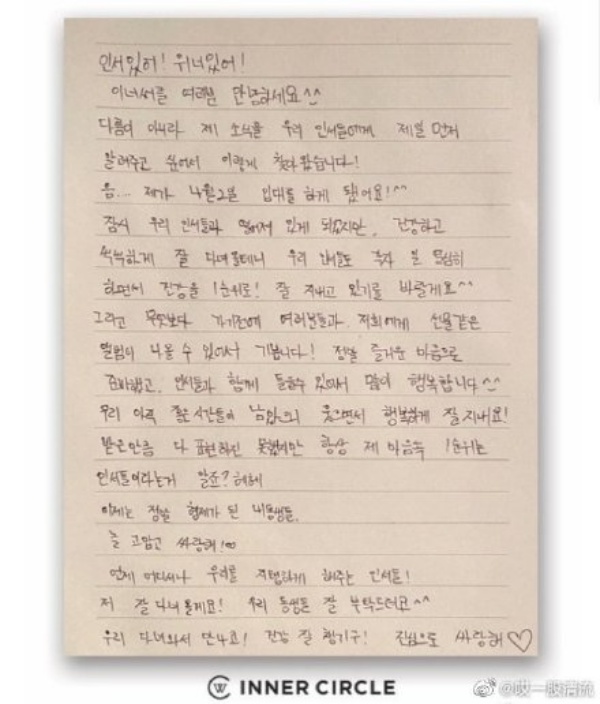 인서있어! 위너있어!
이너써클 여러분 안녕하세요^^
다름이 아니라 제 소식을 우리 인서들에게 제일 먼저
알려주고 싶어서 이렇게 찾아왔습니다!
음... 제가 4월2일 입대를 하게 됐어요!^^
잠시 우리 인서들과 떨어져 있게 되었지만, 건강하고
씩씩하게 잘 다녀올테니 우리 인서들도 각자 일 열심히
하면서 건강을 1순위로! 잘 지내고 있기를 바랄게요^^
그리고 무엇보다 가기전에 여러분들과 저희에게 선물같은
앨범이 나올 수 있어서 기쁩니다! 정말 즐거운 마음으로
준비했고, 인서들과 함께 들을수 있어서 많이 행복합니다^^
우리 아직 좋은시간들이 남았으니 웃으면서 행복하게 잘지내요!
받은만큼 다 표현하진 못했지만 항상 제 마음속 1순위는
인서들이라는거 알죠? 헤헤
이제는 정말 형제가 된 내동생들,
늘 고맙고 싸랑해!∞
언제 어디서나 우리를 지탱하게 해주는 인서들!
저 잘다녀올게요! 우리 동생들 잘 부탁드려요^^
우리 다녀와서 만나요! 건강 잘 챙기구! 진심으로 싸랑해♡
INNER CIRCLE
@哎一股清流